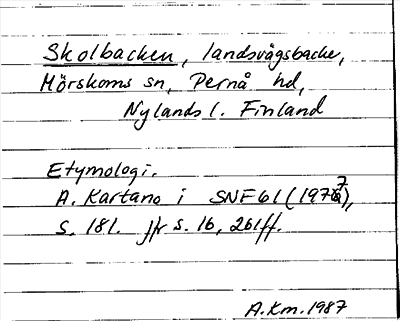 Skolbacken, landsvägsbacke,
Mörskoms sn, Pernå hd,
Nylands l. Finland
Etymologi.
A. Kartano i SNF 61 (1977),
s. 181. jfr s. 16, 261ff.
A.Km. 1987